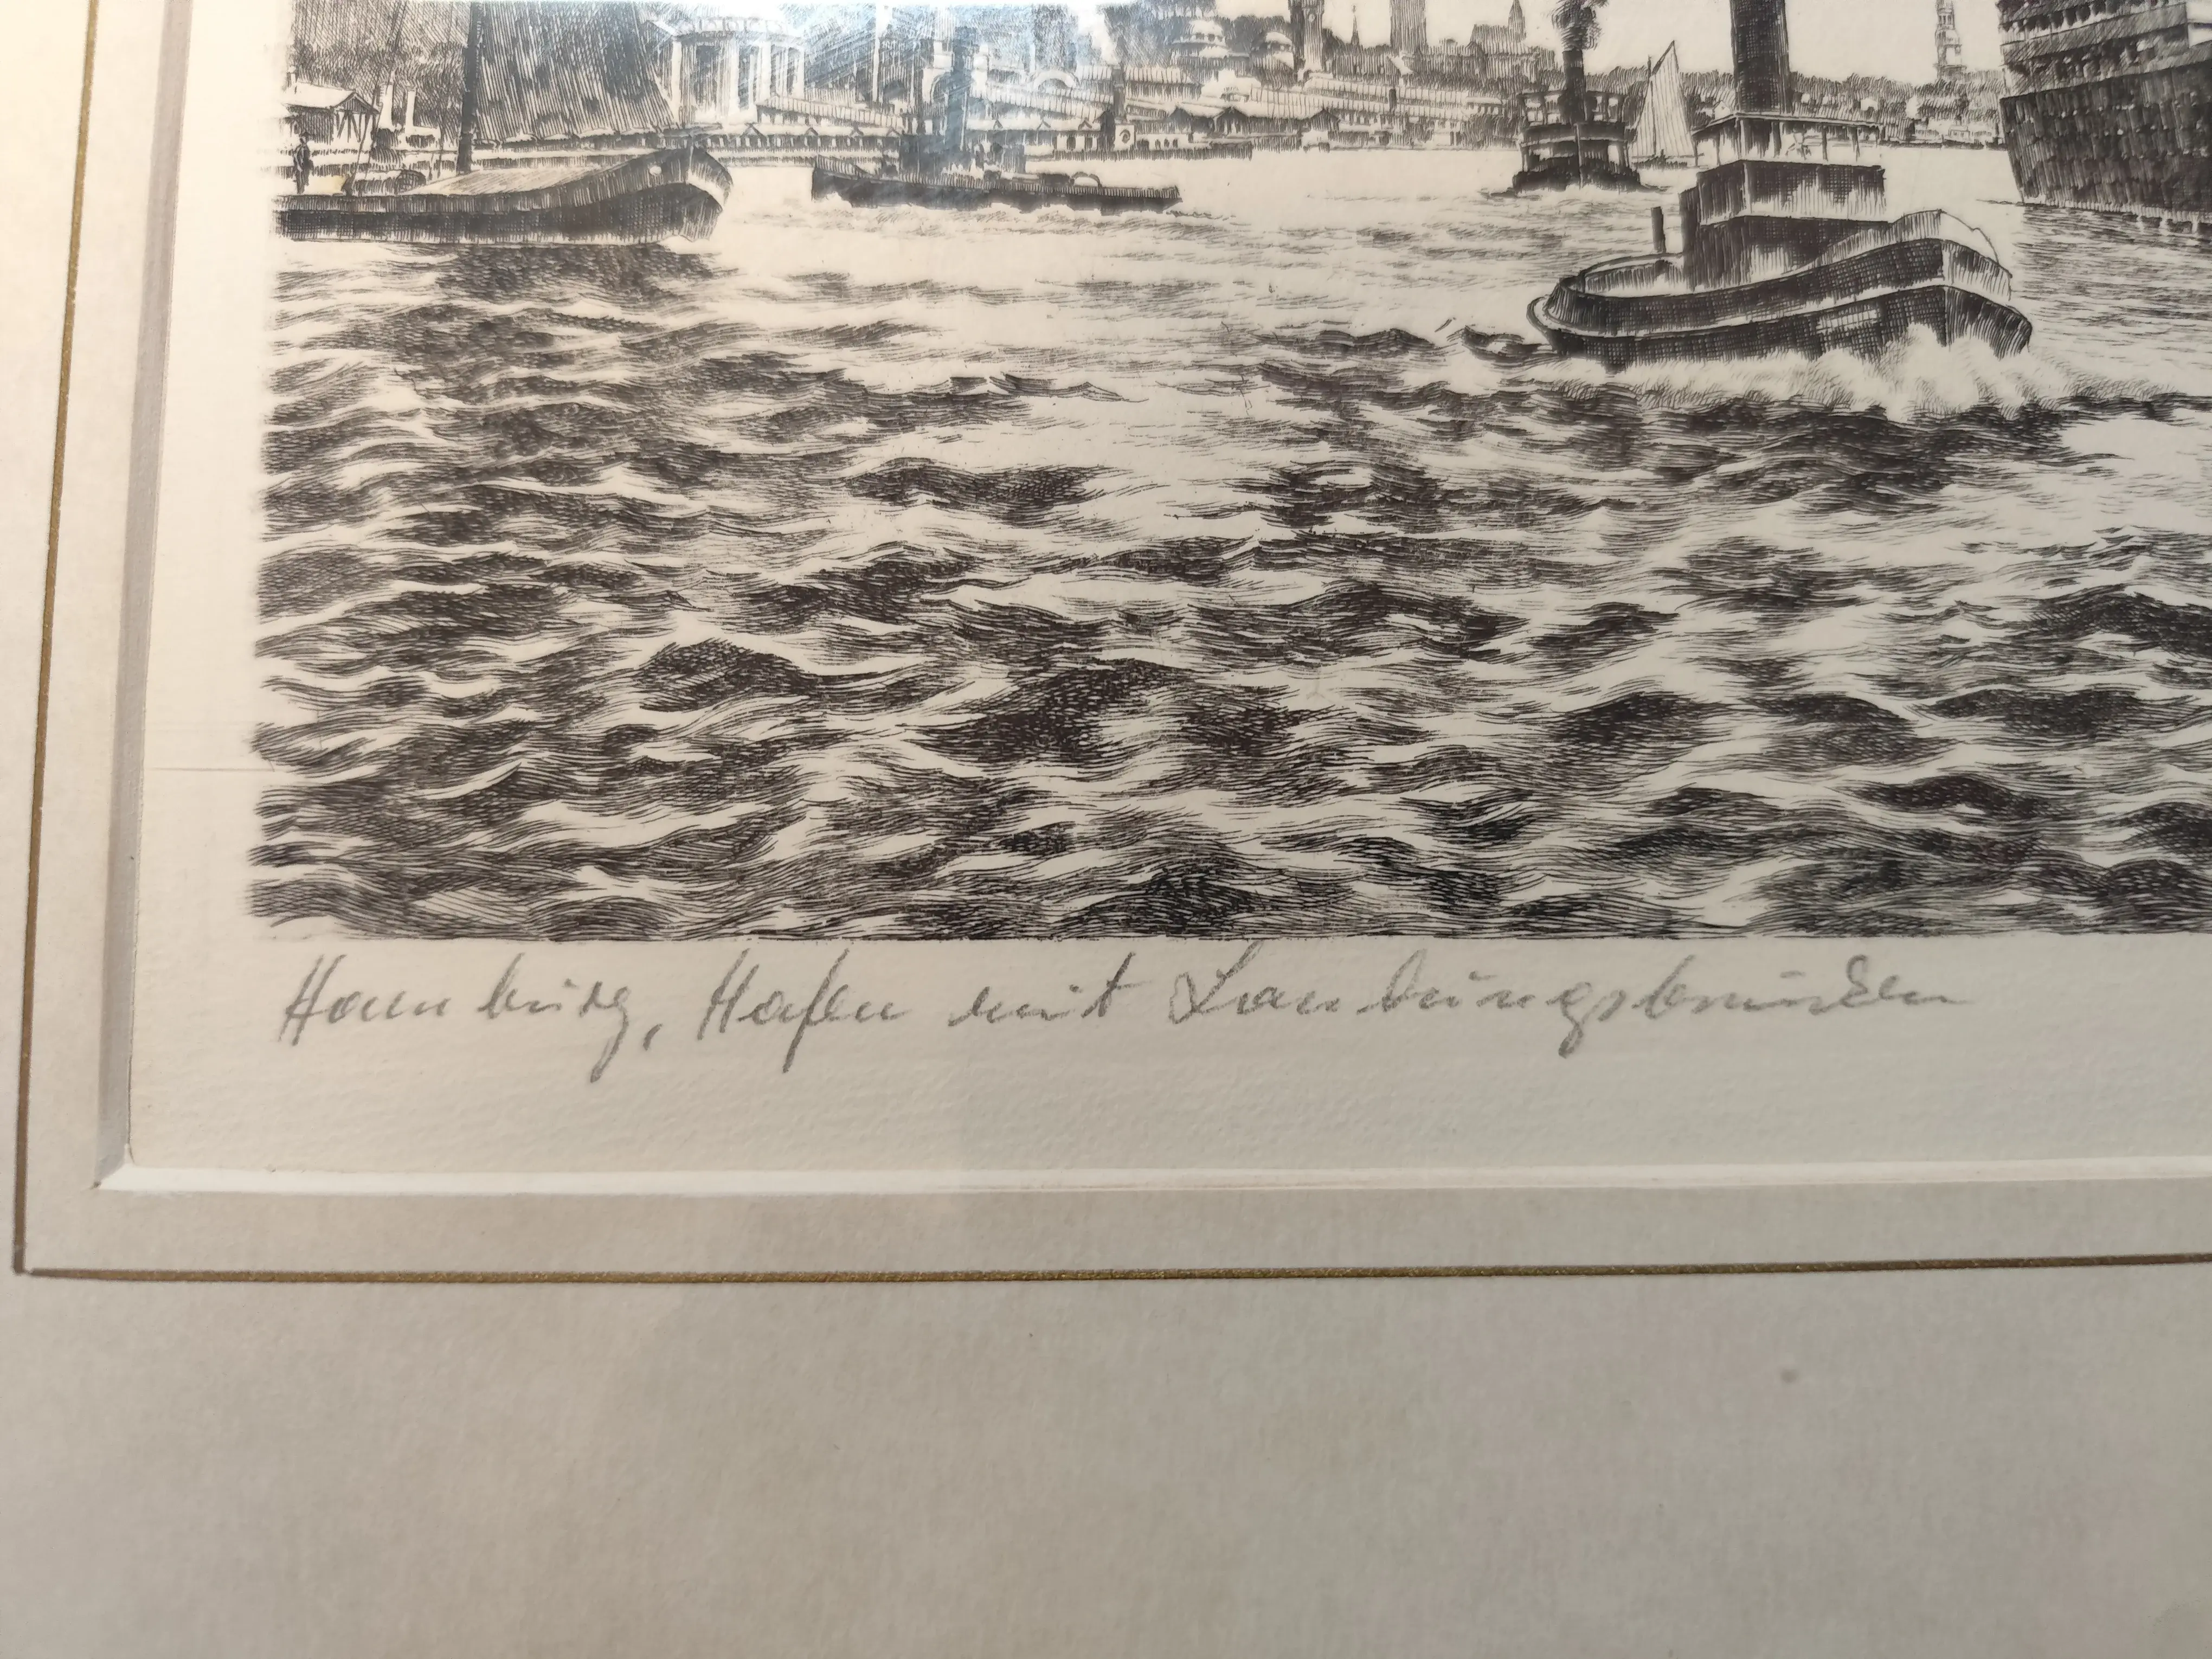 Hamburg, Hafen mit Landungsbrücken